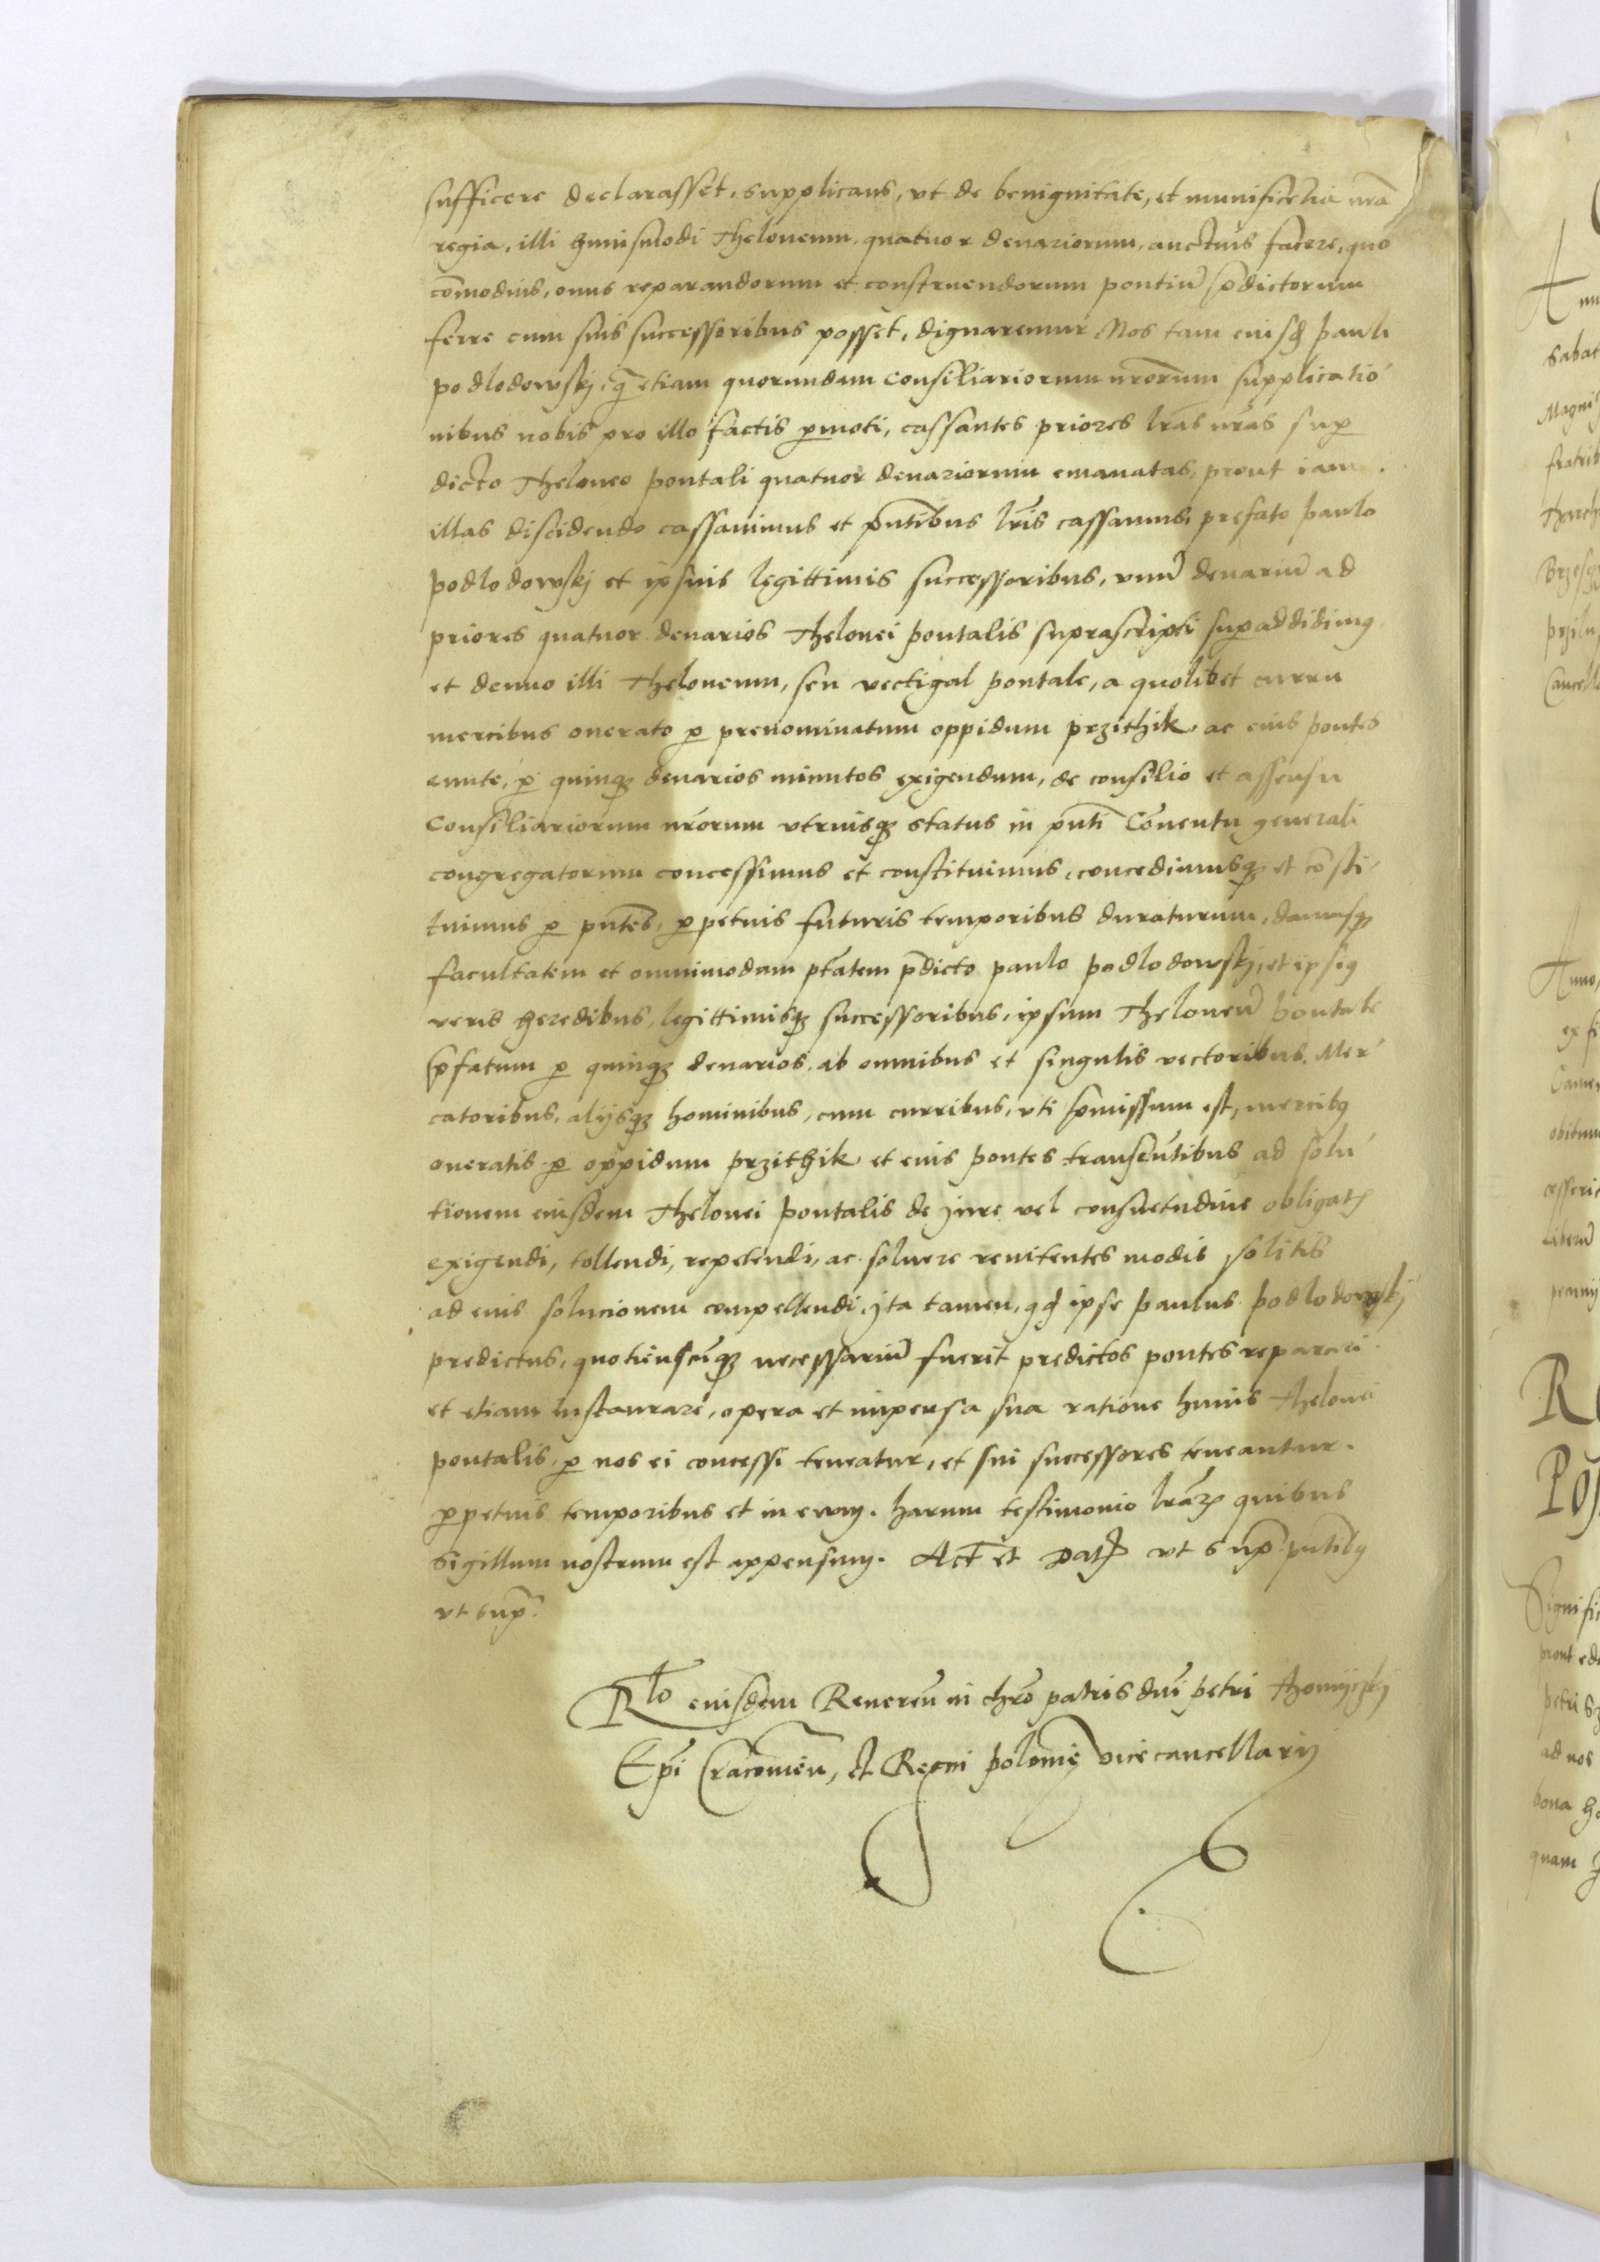 sufficere declarasset, supplicans, vt de benignitate, et munificẽtia nrã
regia, illi huiusmodi Theloneum, quatuor denariorum, auctuis facere, quo
cõmodius, onus reparandorum et construendorum pontiũ p̃dictorum
ferre cum suis successoribus posset, dignaremur Nos tam eiusdẽ pauli
podlodowskj, q̃ etiam quorundam consiliariorum nrõrum supplicatio
nibus nobis pro illo factis ꝑmoti, cassantes priores lrãs nrãs suꝑ
dicto Theloneo pontali quatuor denariorum emanatas, prout iam
illas discidendo cassauimus et pñtibus lrĩs cassamus, prefato paulo
podlodowskj et ipsius legittimis successoribus, vnũ denariũ ad
priores quatuor denarios Thelonei pontalis suprascripti suꝑaddidimꝰ
et denuo illi Theloneum, seu vectigal pontale, a quolibet curru
mercibus onerato ꝑ prenominatum oppidum przithik ac eius pontes
eunte, ꝑ quinqꝫ denarios minutos exigendum, de consilio et assensu
Consiliariorum nrõrum vtriusqꝫ status in pñti Cõuentu generali
congregatorum concessimus et constituimus, concedimusqꝫ et cõsti
tuimus ꝑ pñtes, ꝑpetuis futuris temporibus duraturum, damusqꝫ
facultatem et omnimodam ptãtem p̃dicto paulo podlodowskj, et ipsiꝰ
veris heredibus, legittimisqꝫ successoribus, ipsum Theloneũ pontale
p̃fatum ꝑ quinqꝫ denarios, ab omnibus et singulis vectoribus, Mer
catoribus, alijsqꝫ hominibus, cum curribus, vti p̃missum est, mercibꝰ
oneratis ꝑ oppidum przithik et eius pontes transeũtibus ad solu
tionem eiusdem Thelonei pontalis de jure vel consuetudine obligatꝭ
exigendi, tollendi, repetendi, ac soluere renitentes modis solitis
ad eius solucionem compellendi, jta tamen, qđ ipse paulus podlodowskj
predictus, quotiescũqꝫ necessariũ fuerit predictos pontes reparari
et etiam instaurare, opera et impensa sua ratione huius thelonei
pontalis ꝑ nos ei concessi teneatur, et sui successores teneantur.
ꝑpetuis temporibus et in ewm. harum testimonio lrãrꝫ quibus
sigillum nostrum est appensum. Act̃ et Datꝭ vt supᷓ. pñtibꝰ
vt supᷓ.
Rlo eiusdem Reuereñ in chrõ patris dñi petri thomyczkj
Epĩ Cracouieñ, et Regni polonie vicecancellarij